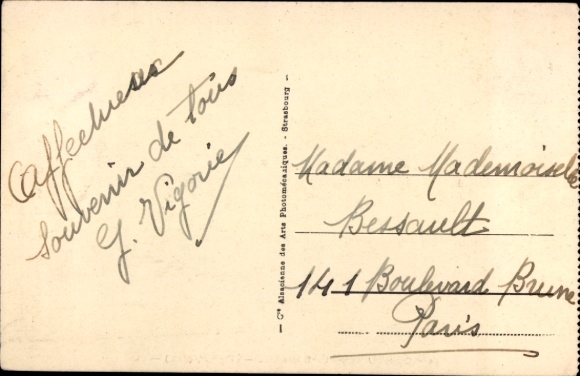 Affectueux
souvenir de tous
G. Vigorie
— Cie Alsacienne des Arts Photomécaniques. - Strasbourg —
Madame Mademoiselle
Bessault
141 Boulevard Brune
Paris